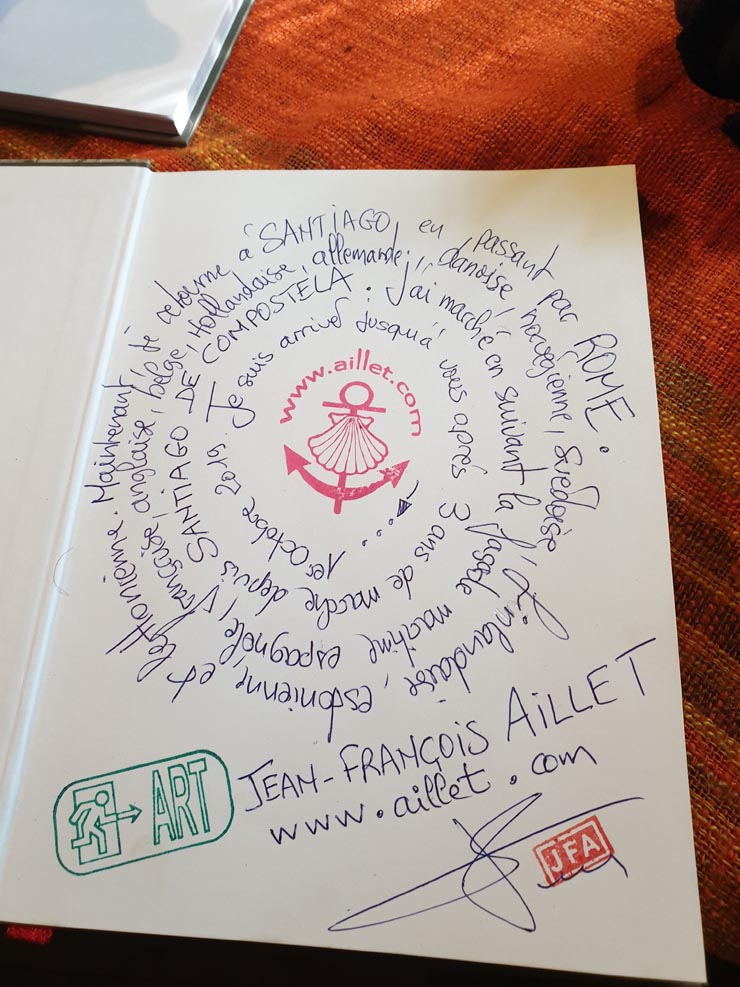 www.aillet.com
1er Octobre 2019. Je suis arrivé jusqu'à vous après 3 ans de marche depuis SANTIAGO DE COMPOSTELA : J'ai marché en suivant la façade maritime espagnole, française, anglaise, belge, Hollandaise, allemande, danoise, norvégienne, suédoise, finlandaise, estonienne et lettonienne. Maintenant, je retourne à SANTIAGO, en passant par ROME.
JEAN-FRANÇOIS AILLET
www.aillet.com
ART
JFA